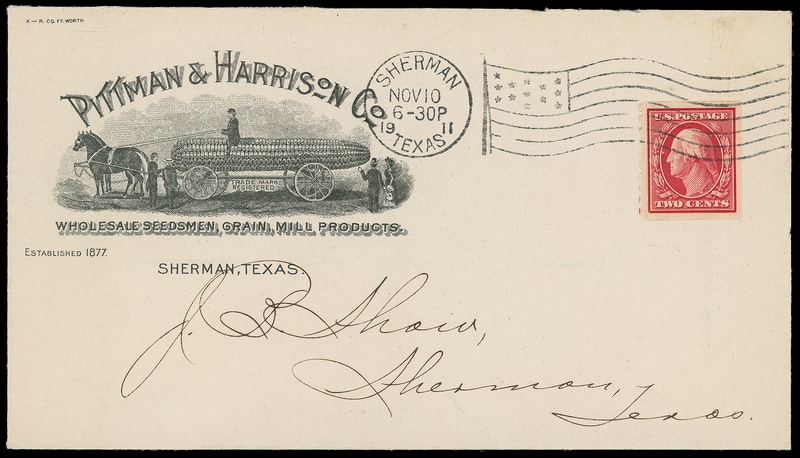 X—R. CO. FT. WORTH
PITTMAN & HARRISON CO
TRADE MARK
REGISTERED
WHOLESALE SEEDSMEN, GRAIN, MILL PRODUCTS.
ESTABLISHED 1877.
SHERMAN, TEXAS.
SHERMAN
NOV 10
6-30P
19 11
TEXAS
U.S. POSTAGE
TWO CENTS
J. B. Shaw,
Sherman,
Texas.